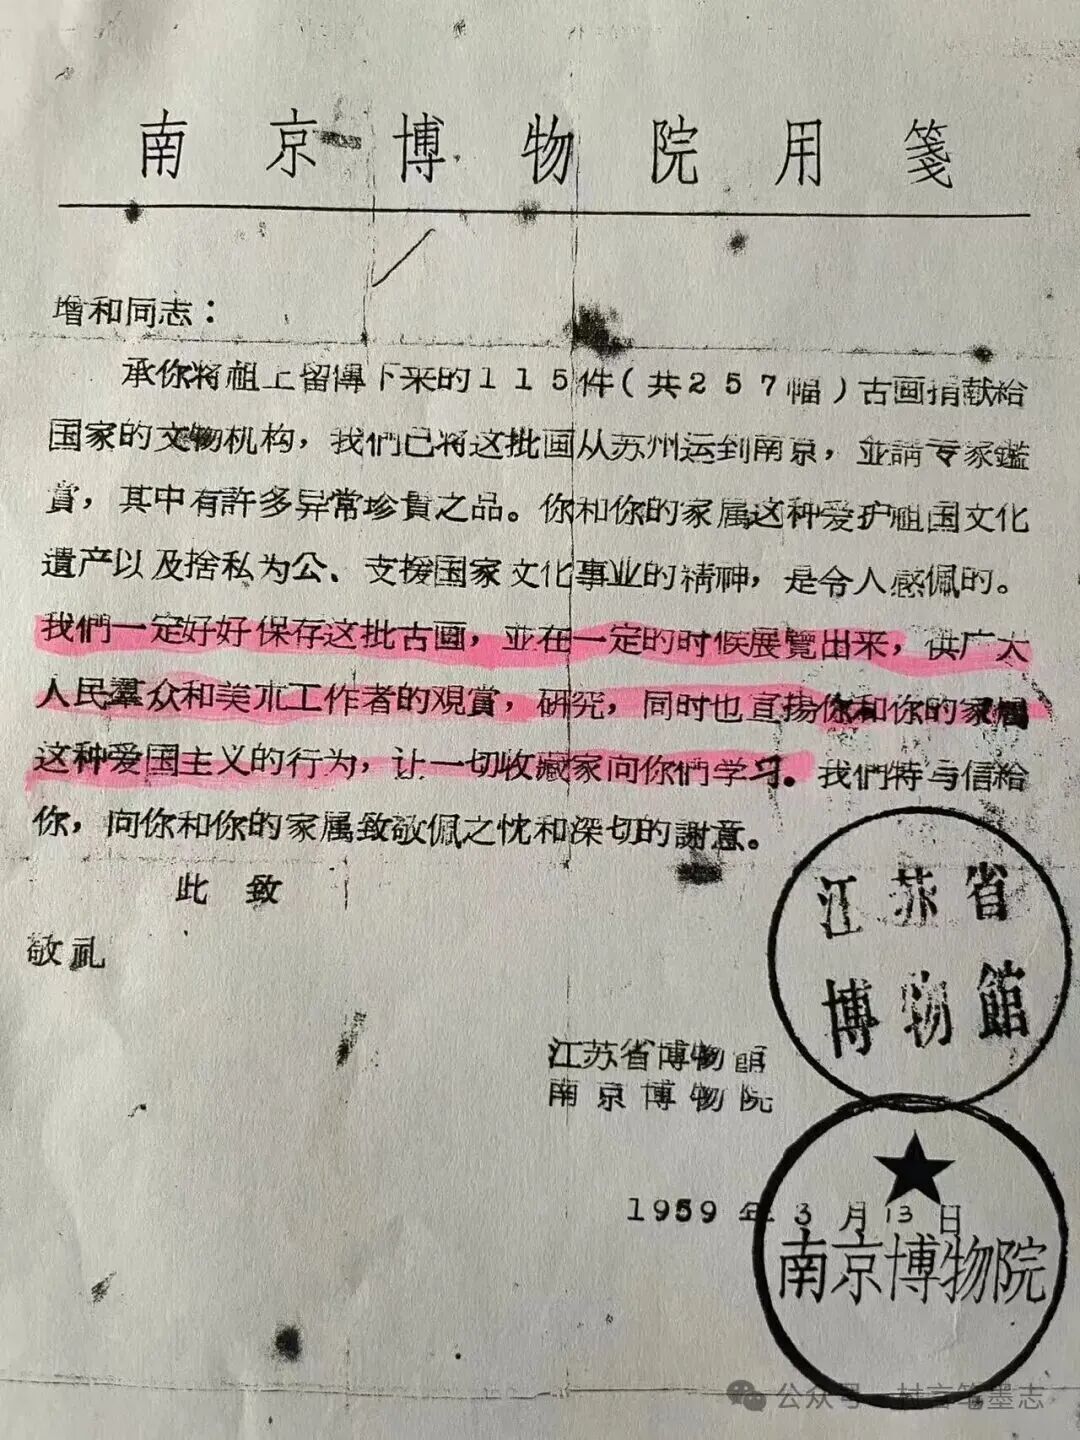 南京博物院用箋
增和同志：
承你将祖上留傳下来的115件(共257幅)古画捐献給
国家的文物机构，我們已将这批画从苏州运到南京，並請专家鑑
賞，其中有許多异常珍貴之品。你和你的家属这种爱护祖国文化
遺产以及捨私为公、支援国家文化事业的精神，是令人感佩的。
我們一定好好保存这批古画，並在一定的时候展覽出来，供广大
人民羣众和美朮工作者的观賞，研究，同时也宣揚你和你的家属
这种爱国主义的行为，让一切收藏家向你們学习。我們特与信給
你，向你和你的家属致敬佩之忱和深切的謝意。
此致
敬礼
江苏省
博物館
江苏省博物館
南京博物院
1959年3月13日
南京博物院
公众号 村言笔墨志